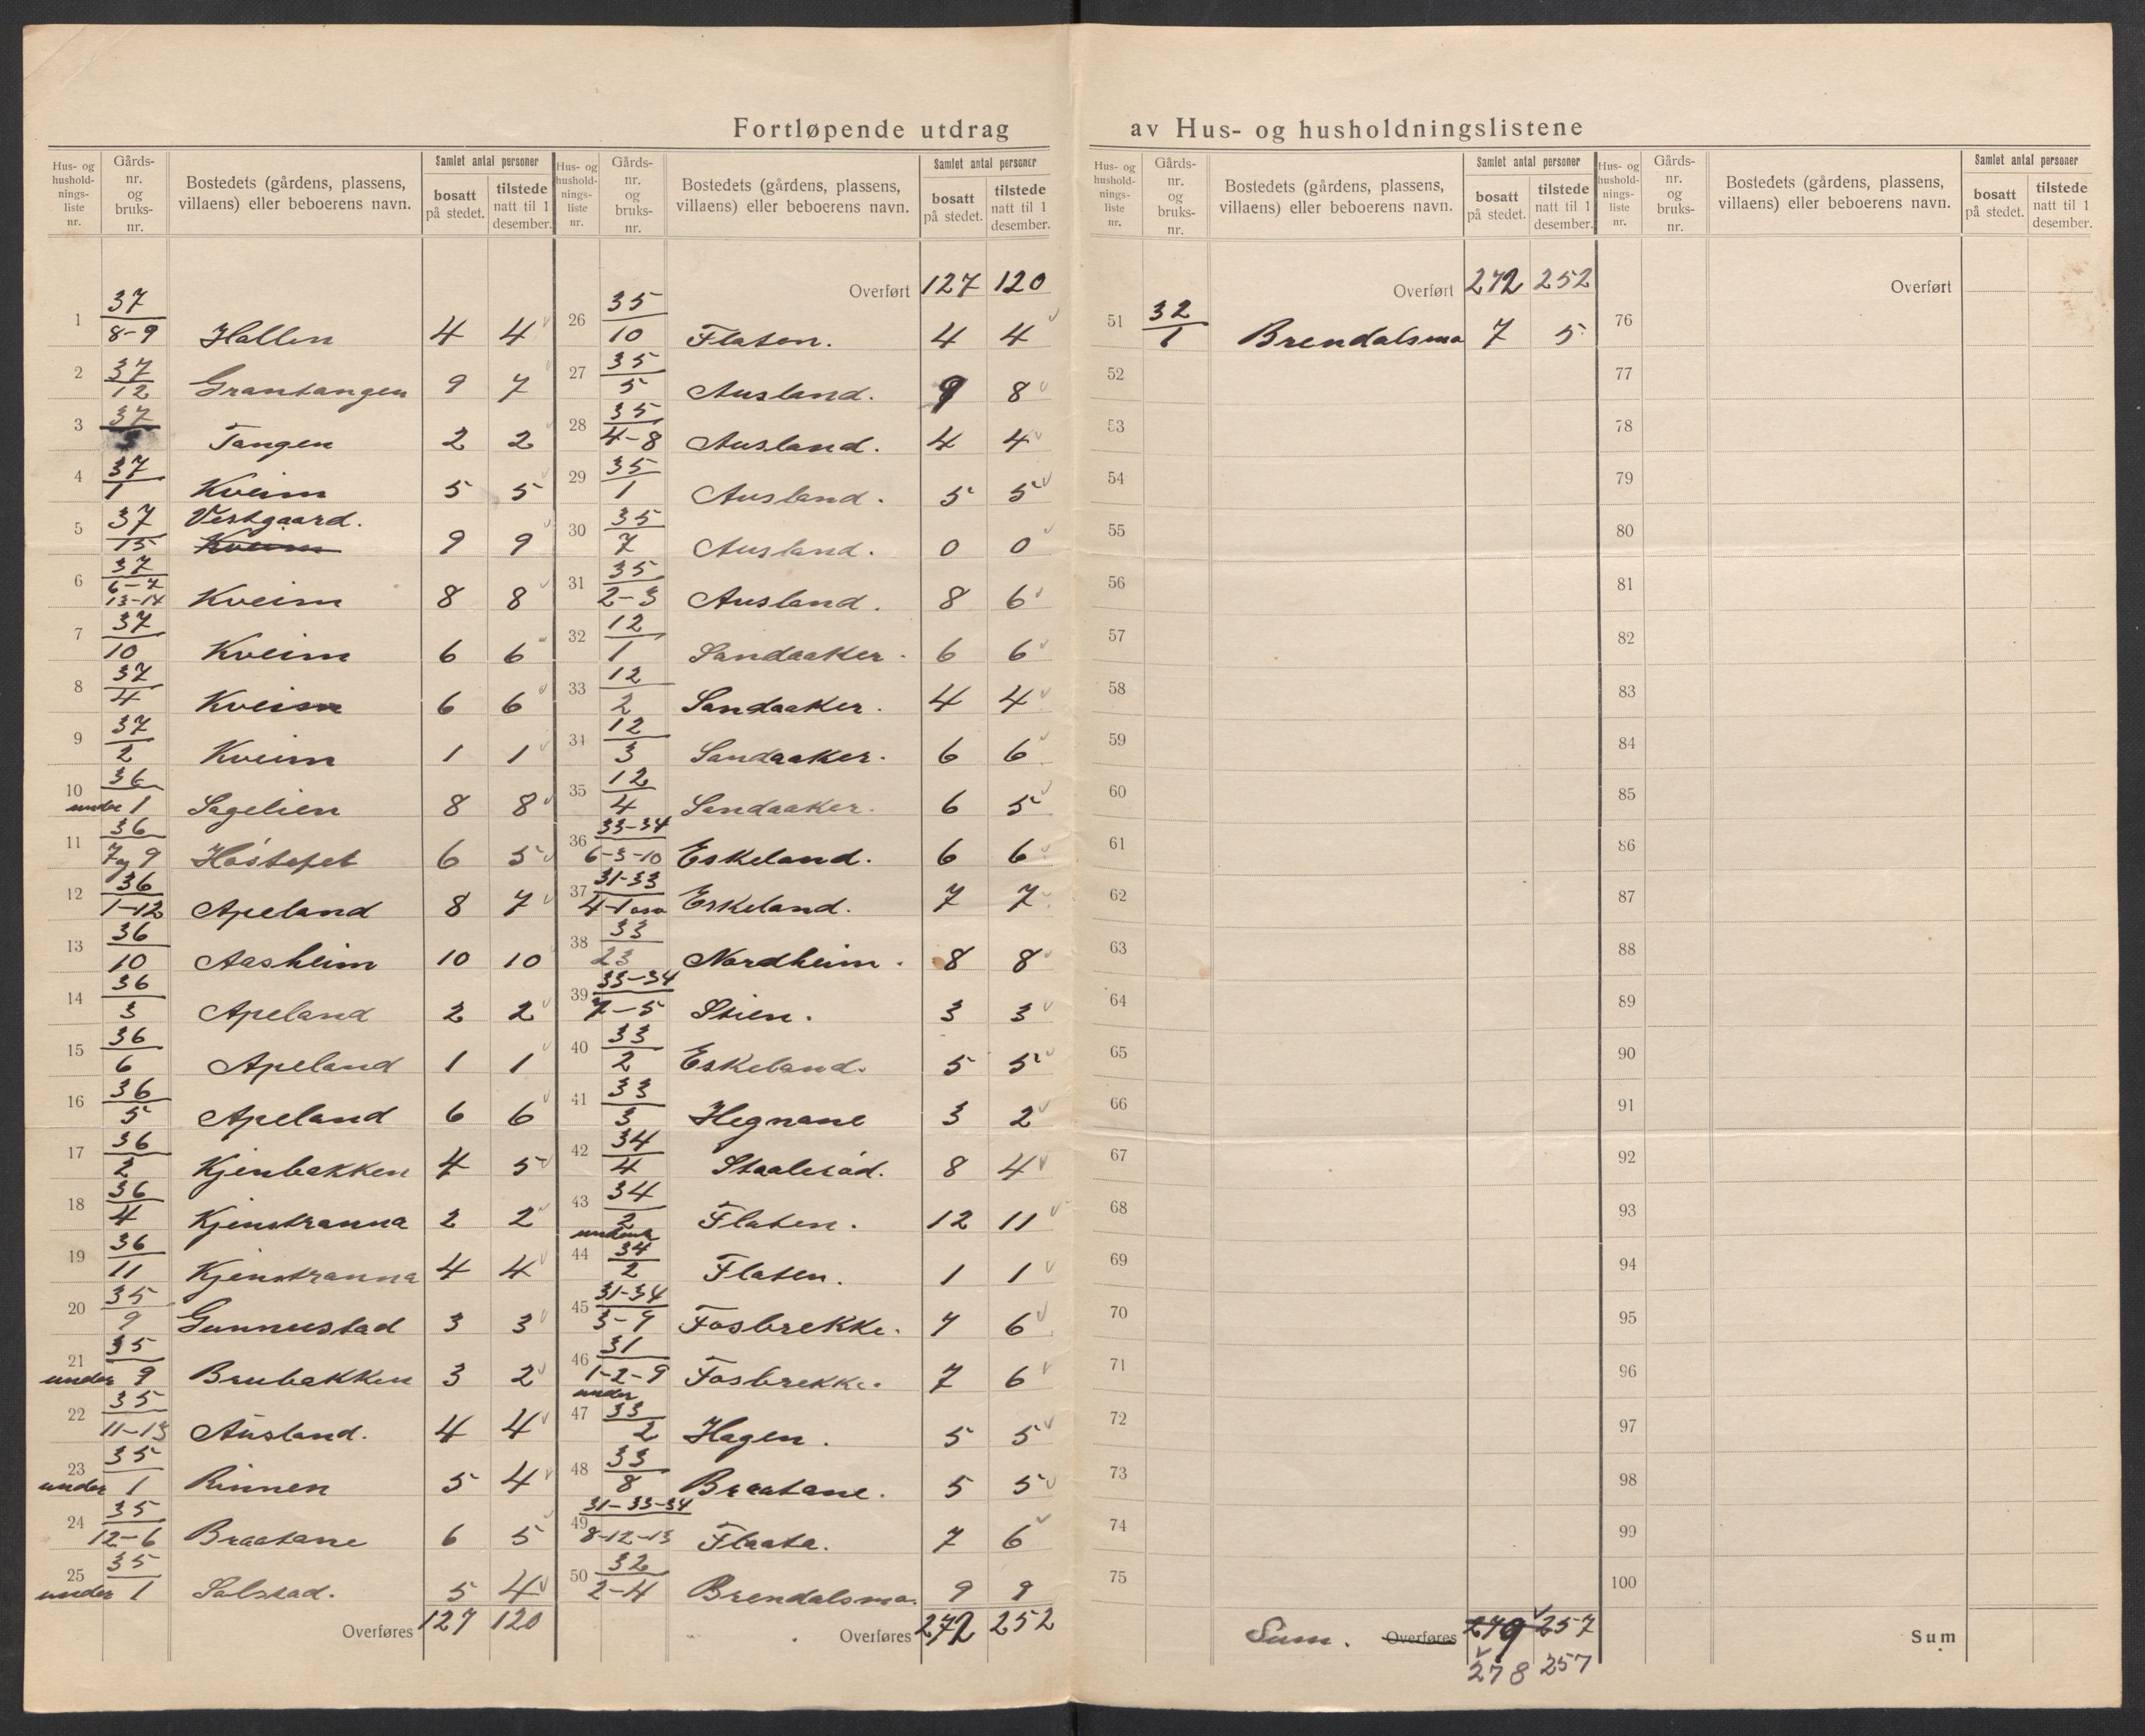 Fortløpende utdrag av Hus- og husholdningslistene
Hus- og hushold-nings-liste nr. Gårds-nr. og bruks-nr. Bostedets (gårdens, plassens, villaens) eller beboerens navn. Samlet antal personer bosatt på stedet. tilstede natt til 1 desember.
1 37/8-9 Hallen 4 4
2 37/12 Grantangen 9 7
3 37/ Tangen 2 2
4 37/1 Kveim 5 5
5 37/15 Vestgaard. Kveim 9 9
6 37/6-7 13-14 Kveim 8 8
7 37/10 Kveim 6 6
8 37/4 Kveim 6 6
9 37/2 Kveim 1 1
10 36/under 1 Sagelien 8 8
11 36/7 og 9 6 5
12 36/1-12 Apeland 8 7
13 36/10 Aasheim 10 10
14 36/3 Apeland 2 2
15 36/6 Apeland 1 1
16 36/5 Apeland 6 6
17 36/2 Kjenbakken 4 5
18 36/4 Kjenstranna 2 2
19 36/11 Kjenstranna 4 4
20 35/9 Gunneistad 3 3
21 35/under 9 Brubakken 3 2
22 35/11-13 Ausland. 4 4
23 35/under 1 Rinnen 5 4
24 35/12-6 Braatane 6 5
25 35/under 1 Solstad. 5 4
Overføres 127 120
Hus- og hushold-nings-liste nr. Gårds-nr. og bruks-nr. Bostedets (gårdens, plassens, villaens) eller beboerens navn. Samlet antal personer bosatt på stedet. tilstede natt til 1 desember.
Overført 127 120
26 35/10 Flaten. 4 4
27 35/5 Ausland. 9 8
28 35/4-8 Ausland. 4 4
29 35/1 Ausland. 5 5
30 35/7 Ausland. 0 0
31 35/2-3 Ausland. 8 6
32 12/1 Sandaaker. 6 6
33 12/2 Sandaaker. 4 4
34 12/3 Sandaaker. 6 6
35 12/4 Sandaaker. 6 5
36 33-34/6-3-10 Eskeland. 6 6
37 31-33/4-1 Eskeland. 7 7
38 33/23 Nordheim. 8 8
39 33-34/7-5 Stien. 3 3
40 33/2 Eskeland. 5 5
41 33/3 Hegnane 3 2
42 34/4 8 4
43 34/2 Flaten. 12 11
44 under 34/2 Flaten. 1 1
45 31-34/3-7 Fosbrekke. 7 6
46 31/1-2-9 Fosbrekke. 7 6
47 under 33/2 Hagen. 5 5
48 33/8 Braatane. 5 5
49 31-33-34/8-12-13 Flaata. 7 6
50 32/2-4 Brendalsmo. 9 9
Overføres 272 252
Hus- og hushold-nings-liste nr. Gårds-nr. og bruks-nr. Bostedets (gårdens, plassens, villaens) eller beboerens navn. Samlet antal personer bosatt på stedet. tilstede natt til 1 desember.
Overført 272 252
51 32/1 Brendalsmo 7 5
52
53
54
55
56
57
58
59
60
61
62
63
64
65
66
67
68
69
70
71
72
73
74
75
Sum. Overføres 279 257
278 257
Hus- og hushold-nings-liste nr. Gårds-nr. og bruks-nr. Bostedets (gårdens, plassens, villaens) eller beboerens navn. Samlet antal personer bosatt på stedet. tilstede natt til 1 desember.
Overført
76
77
78
79
80
81
82
83
84
85
86
87
88
89
90
91
92
93
94
95
96
97
98
99
100
Sum